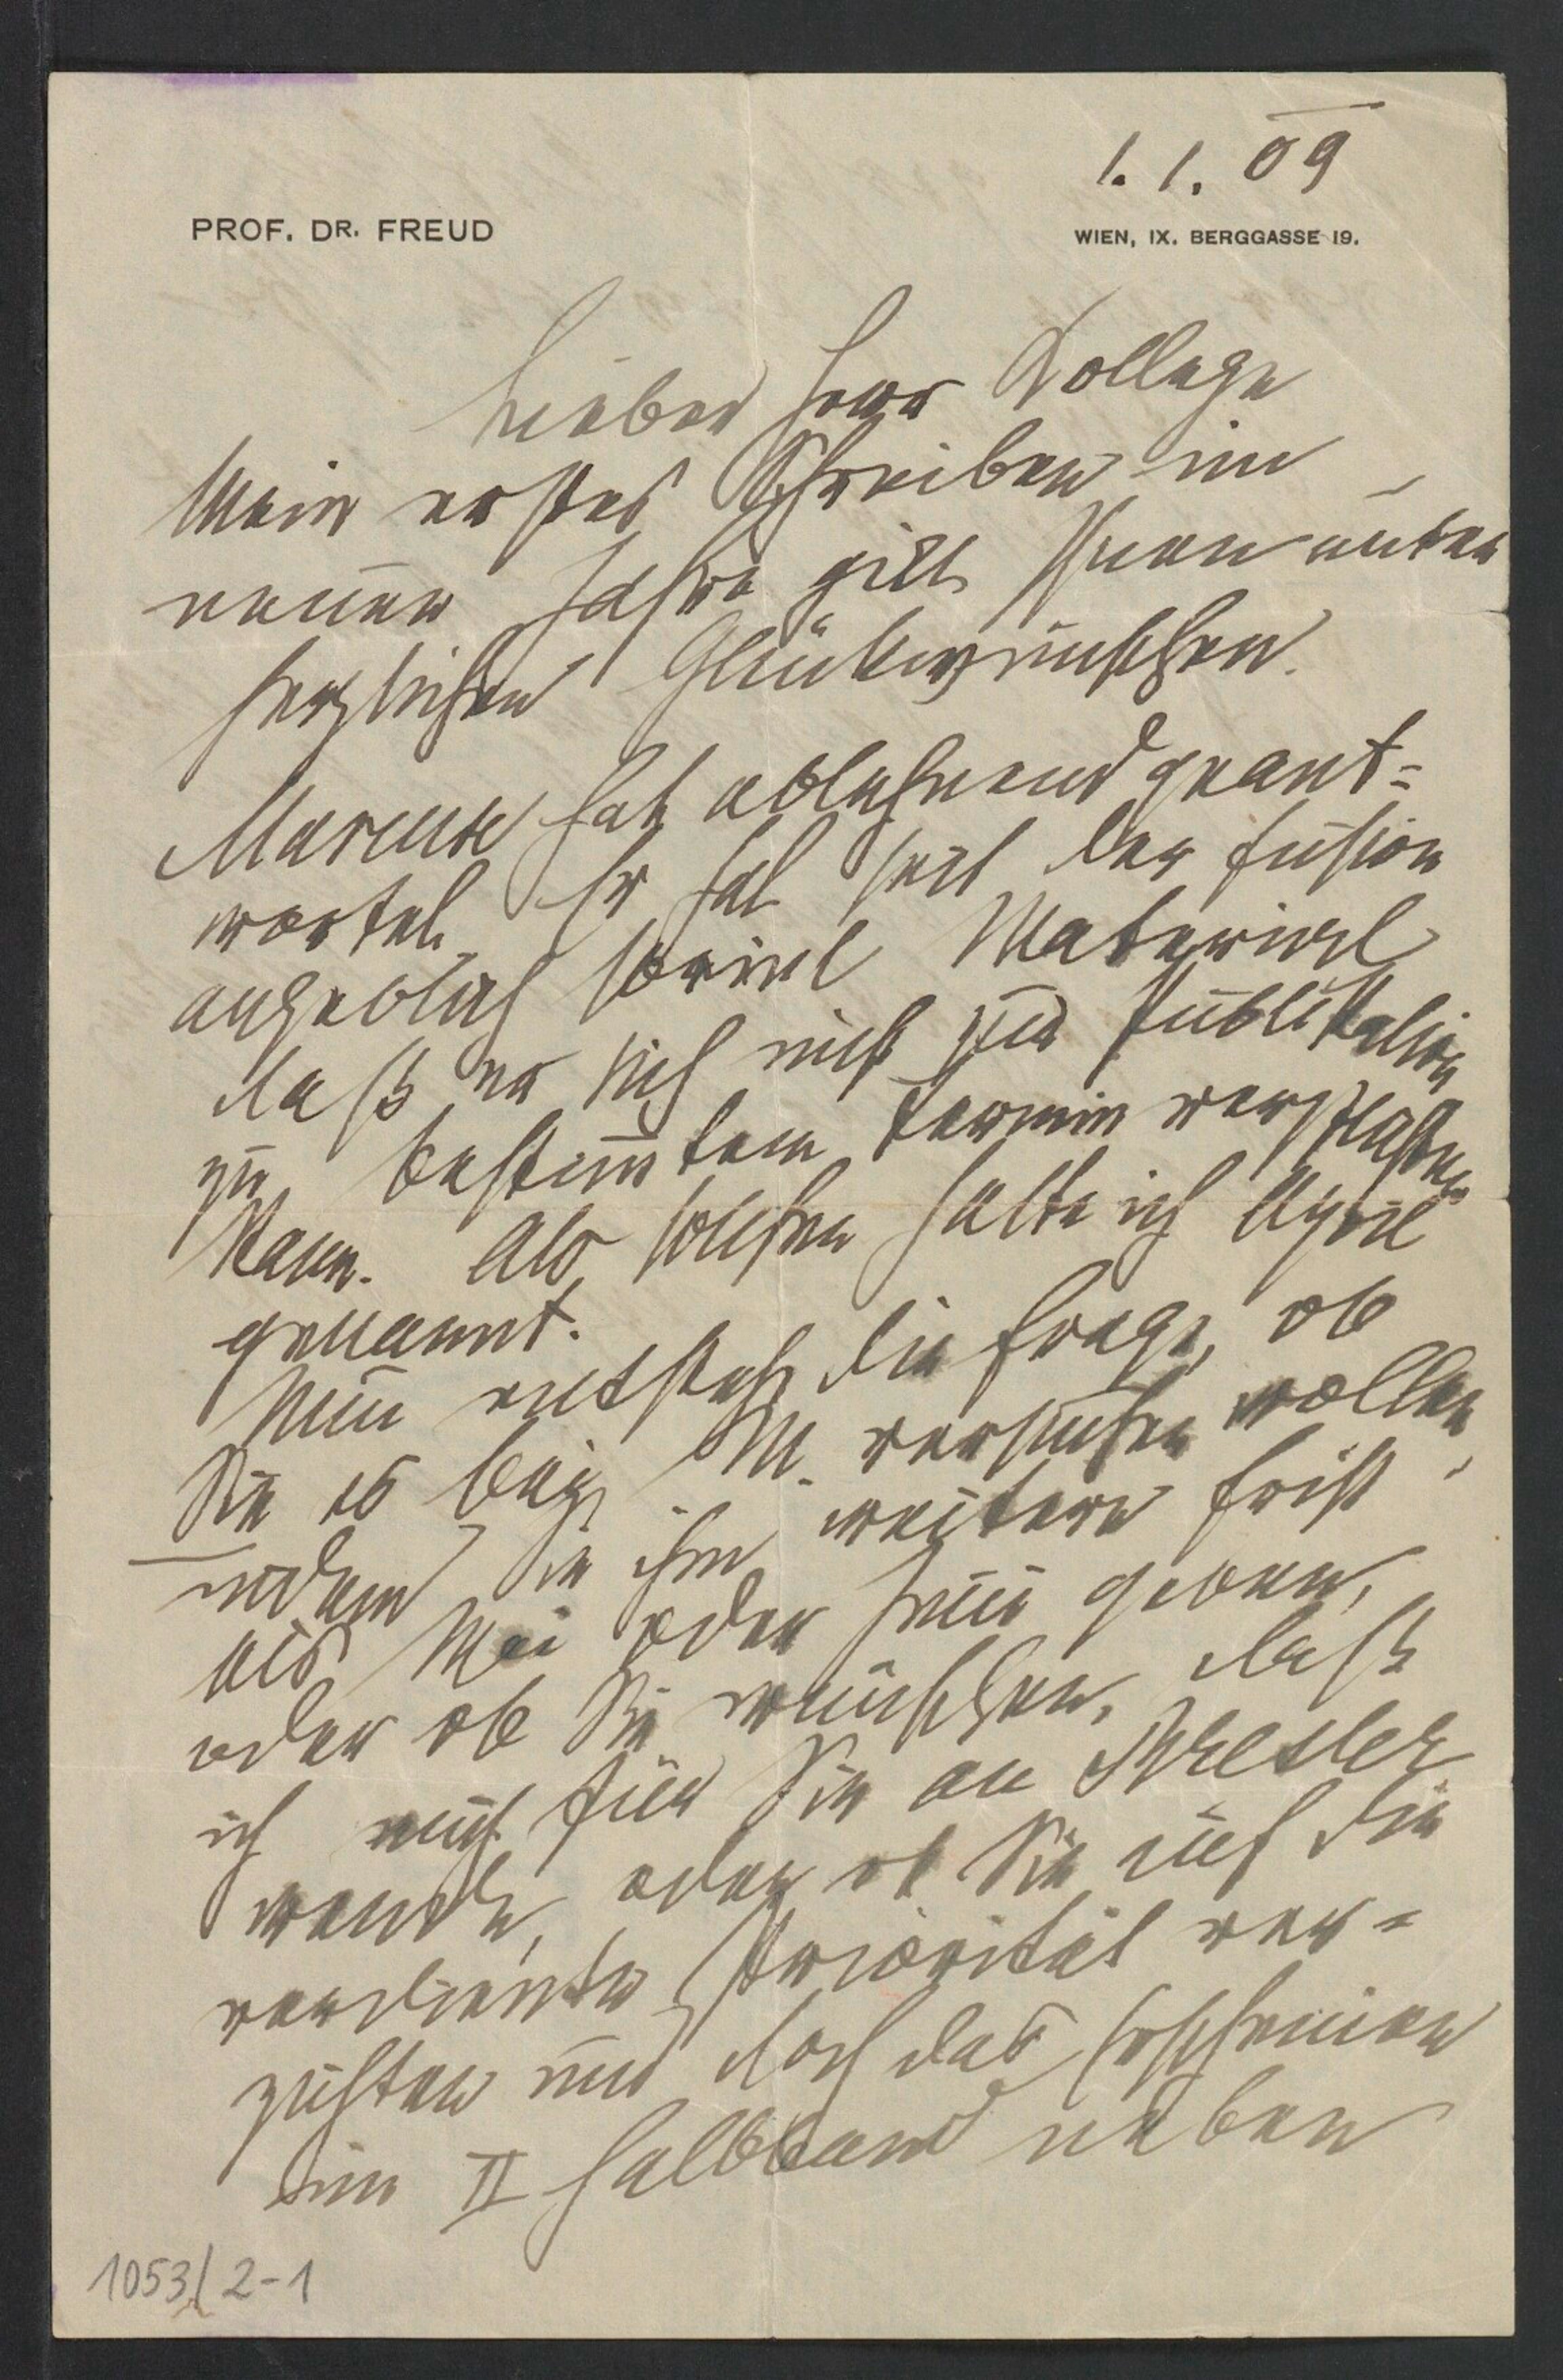 1. 1. 09
PROF. DR. FREUD
WIEN, IX. BERGGASSE 19.
Lieber Herr Kollege
Mein erstes Schreiben im
neuen Jahre gilt Ihnen unter
herzlichen Glückwünschen.
Marcuse hat ablehnend geant=
wortet. Er hat seit der Fusion
angeblich soviel Material
daß er sich nicht zur Publikation
zu bestimtem Termin verpflichten
kann. Als solchen hatte ich April
genannt.
Nun entsteht die Frage, ob
Sie es bei M. versuchen wollen,
indem Sie ihm weitere Frist
als Mai oder Juni geben,
oder ob Sie wünschen, daß
ich mich für Sie an Bresler
wende, oder ob Sie auf die
verdiente Priorität ver=
zichten und doch das Erscheinen
im II Halbband neben
1053/2-1